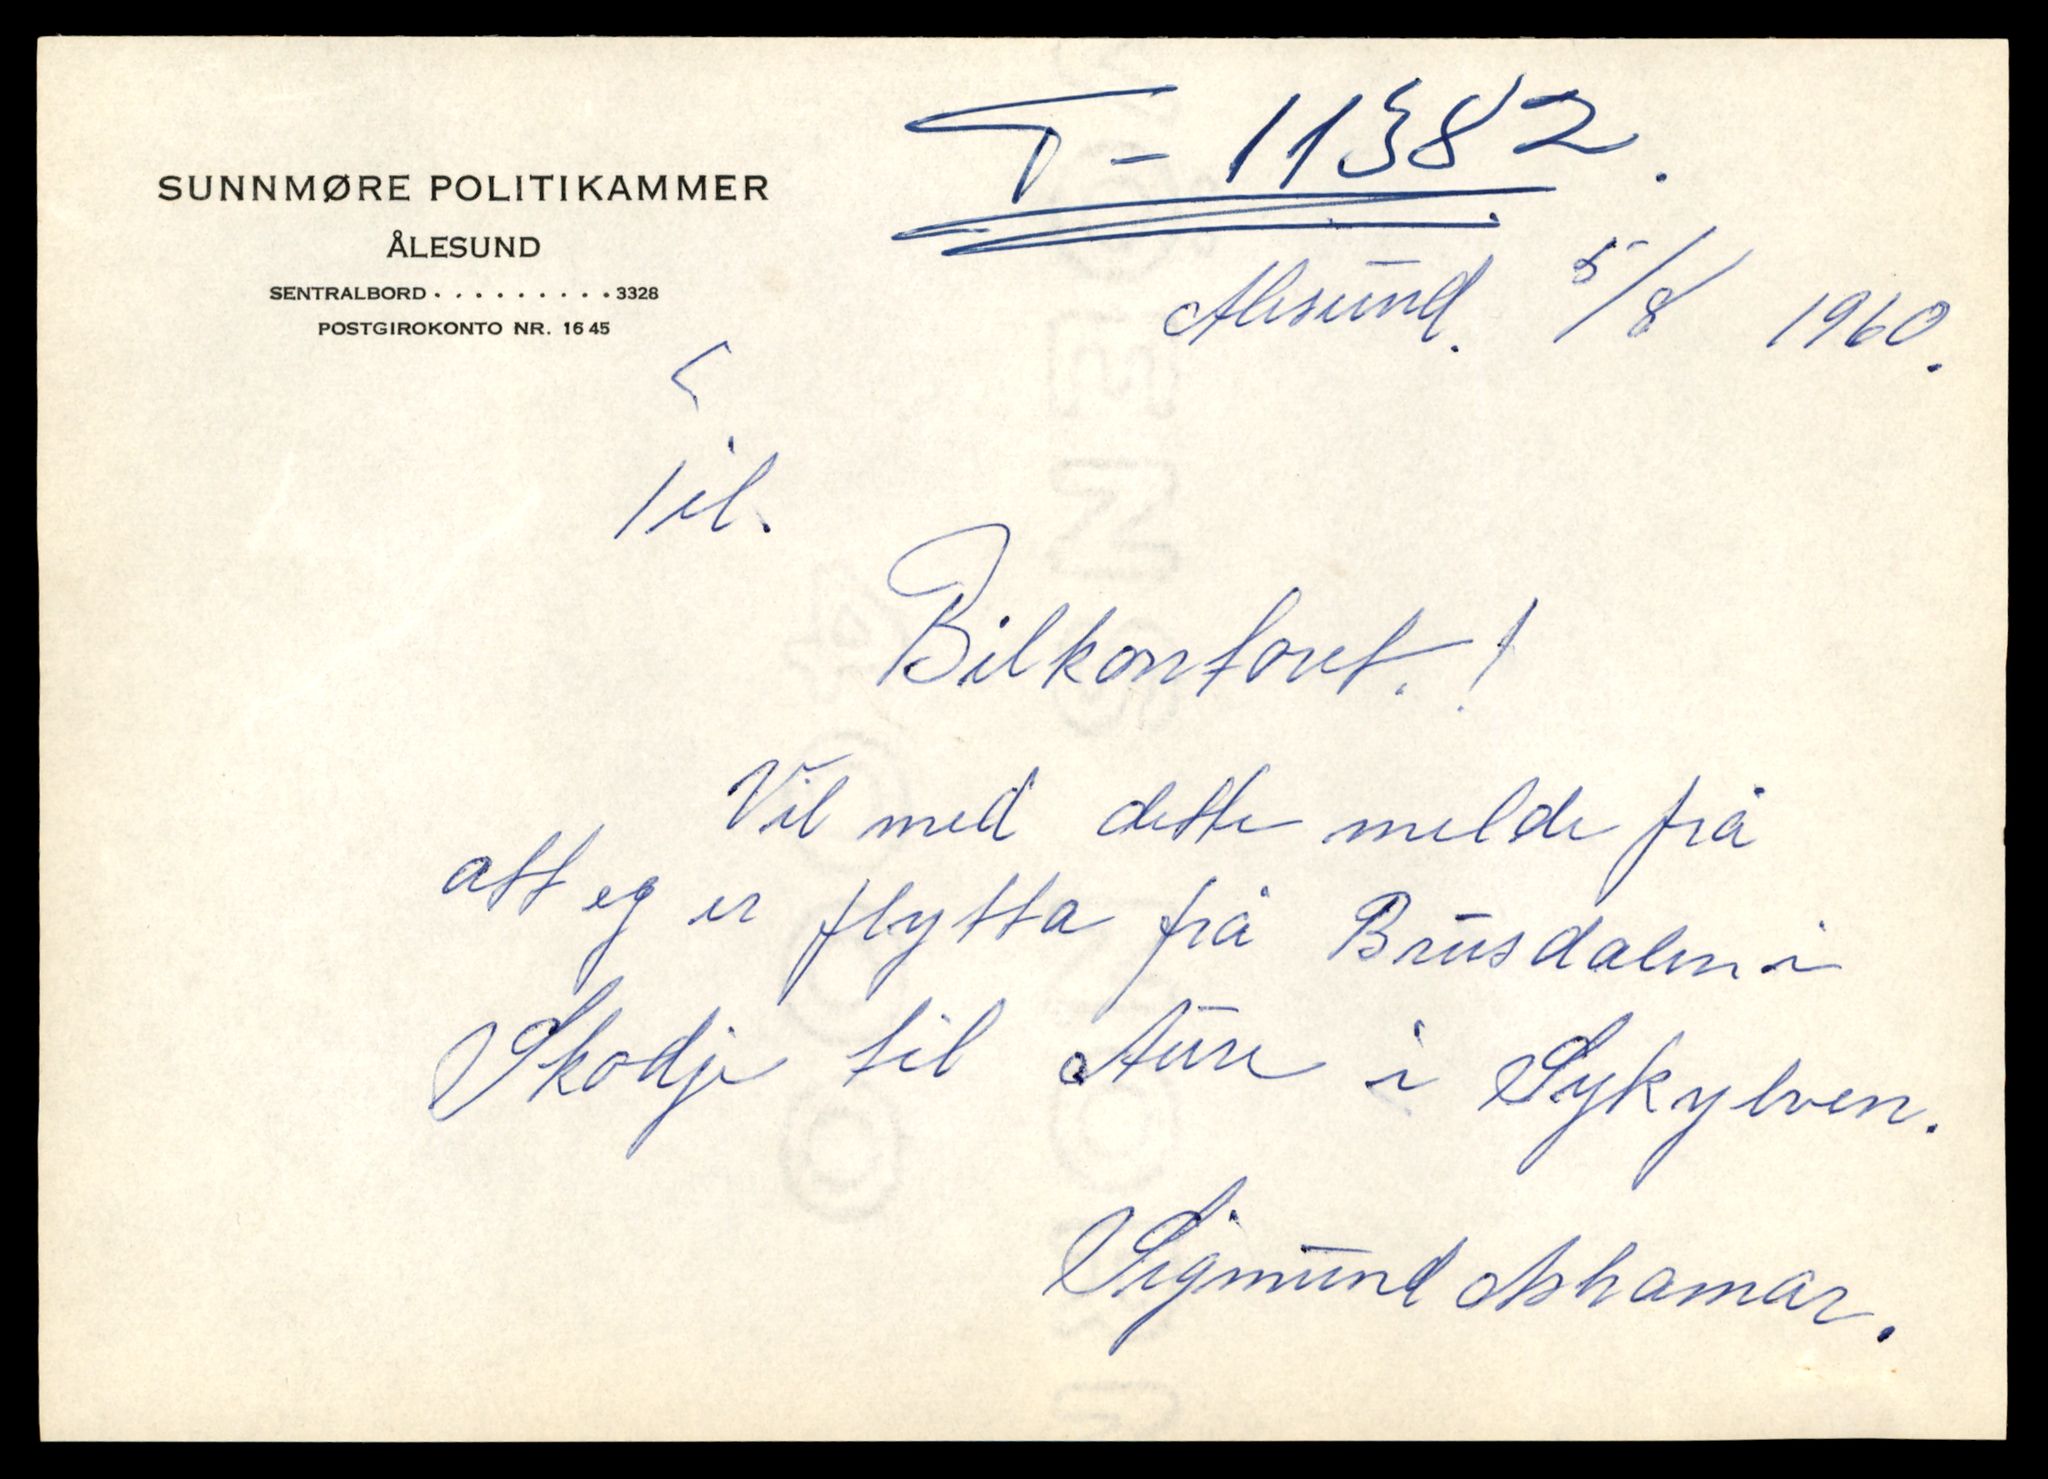 SUNNMØRE POLITIKAMMER
ÅLESUND
SENTRALBORD . . . . . . . . . 3328
POSTGIROKONTO NR. 1645
T - 11382.
Ålesund. 5/8 1960.
Til.
Bilkontoret.!
Vil med dette melde frå
att eg er flytta frå Brusdalen i
Skodje til Aure i Sykylven.
Sigmund Ashamar.